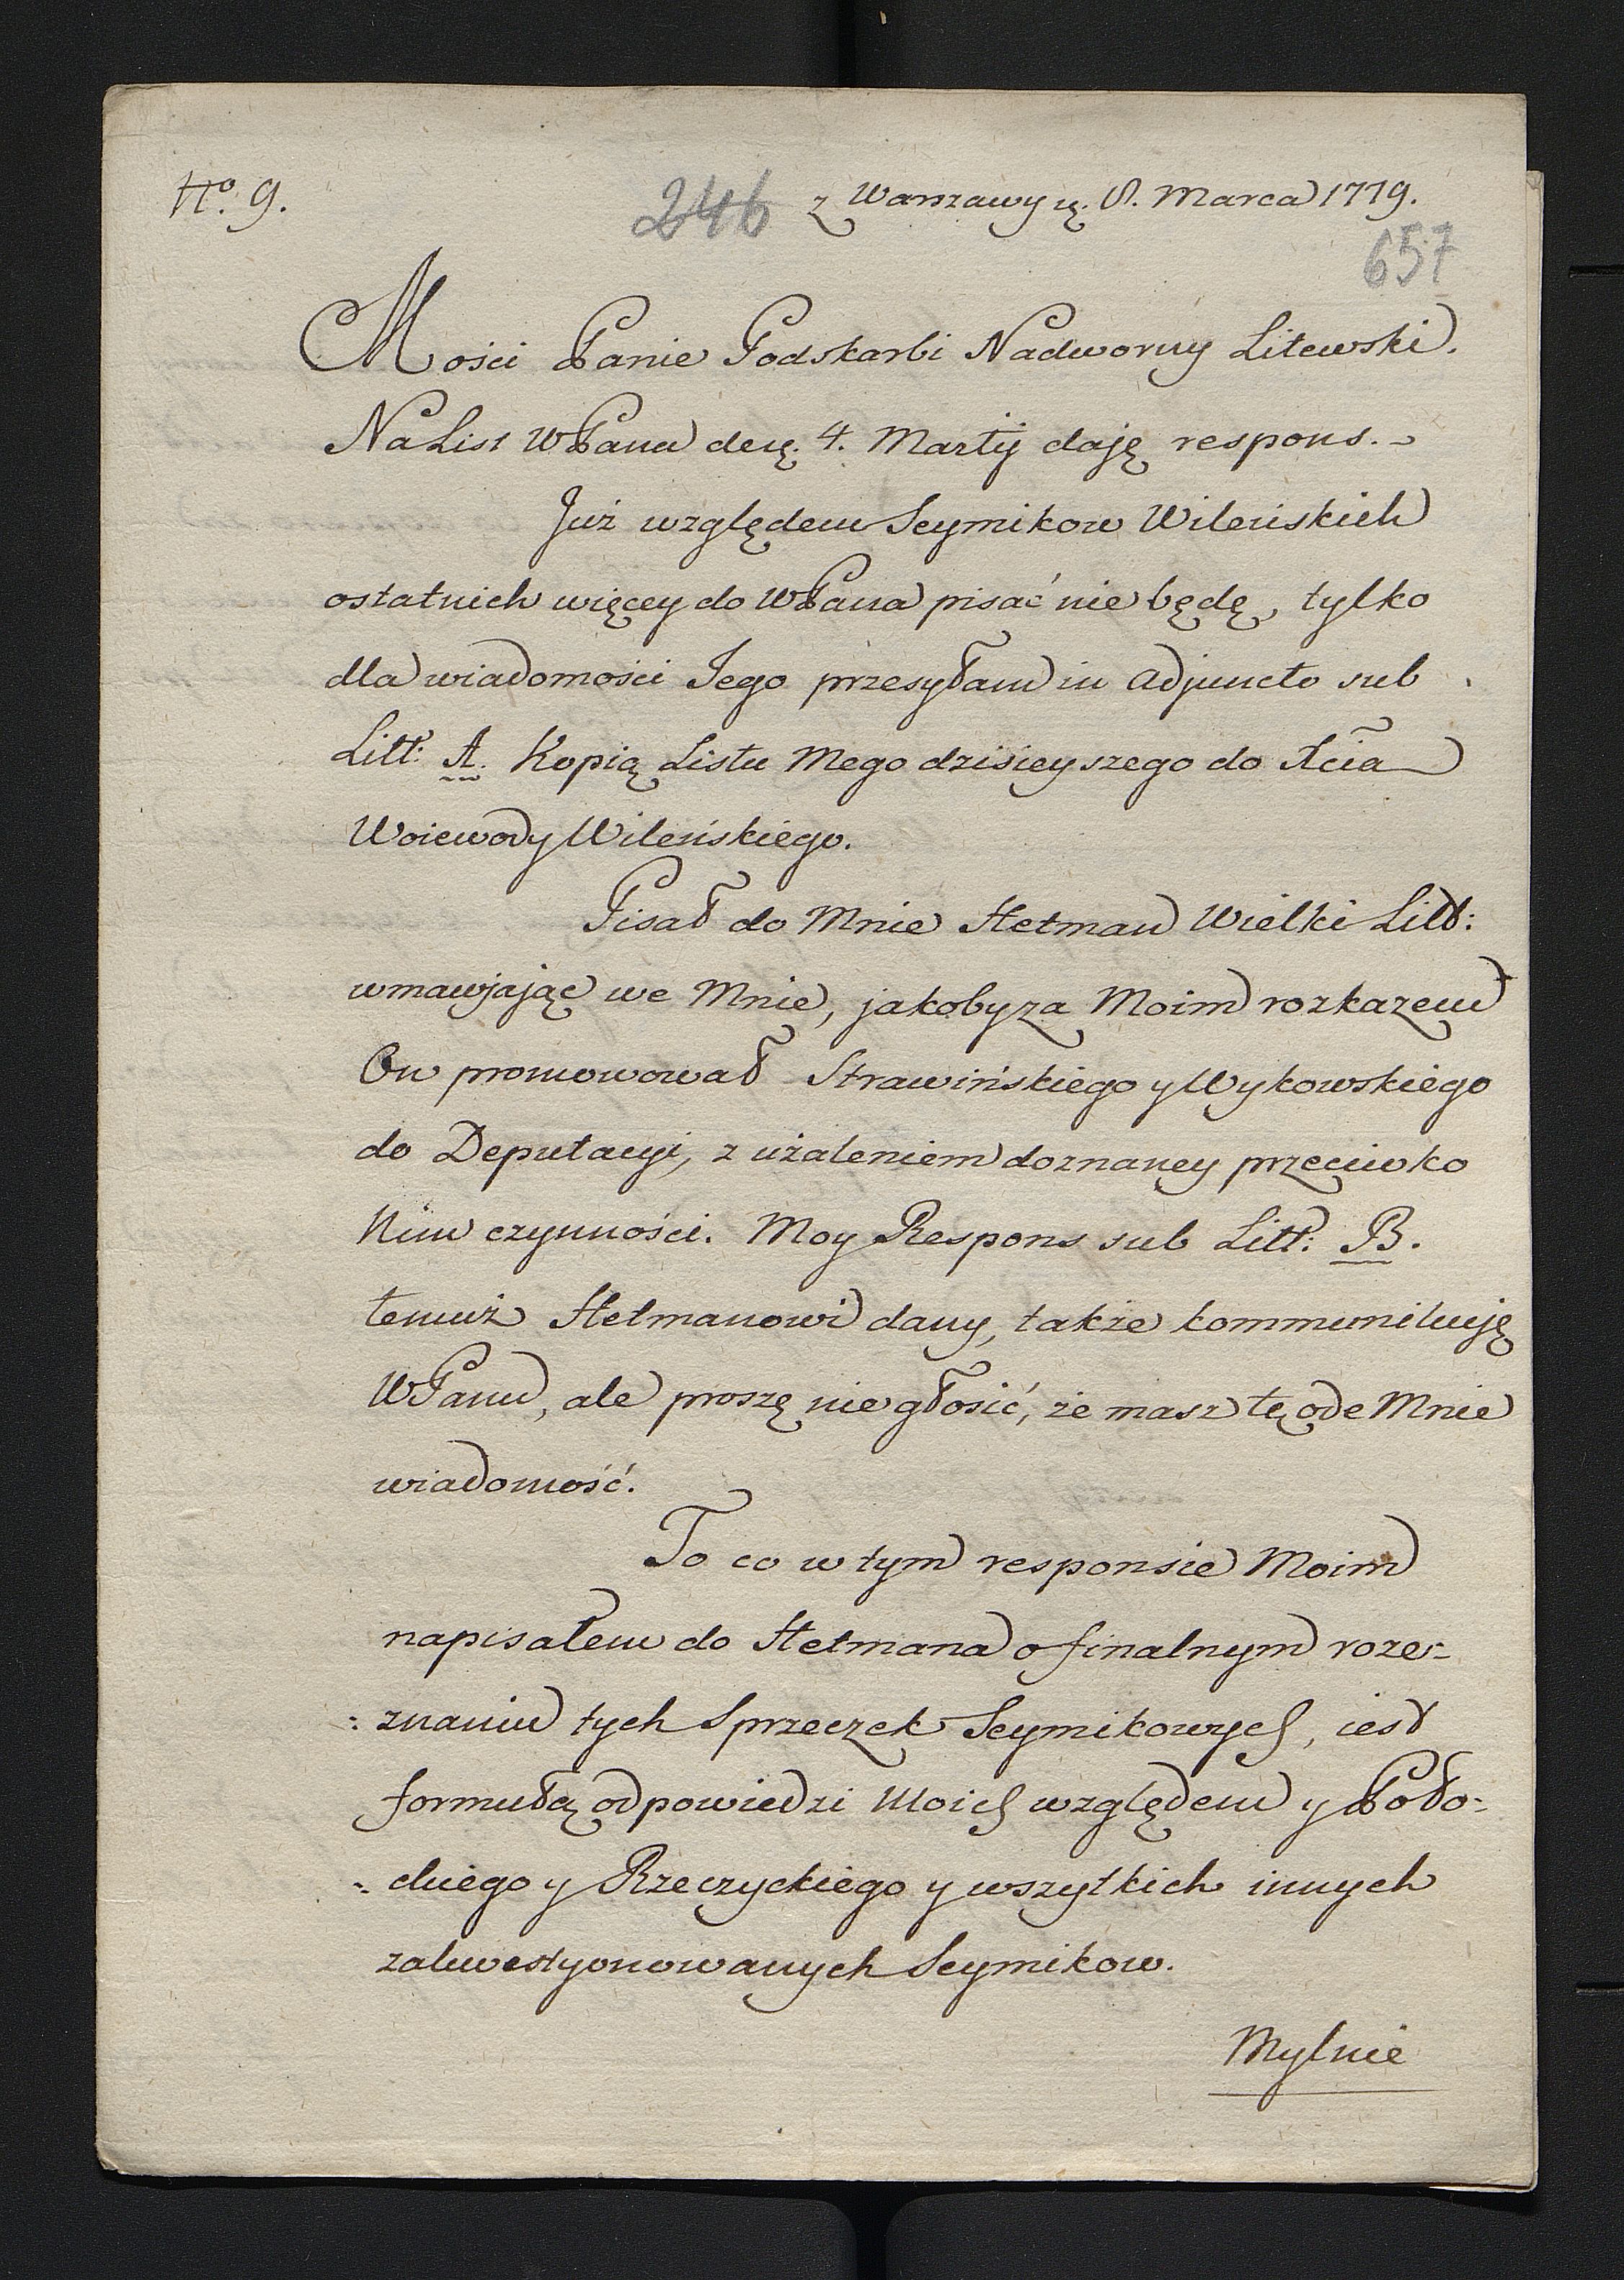 No. 9.
246 z Warszawy d. 8. Marca 1779.
657
Mości Panie Podskarbi Nadworny Litewski.
Na List WPana de d. 4. Martij daję respons.
Już względem Seymikow Wileńskich
ostatnich więcey do WPana pisać nie będę, tylko
dla wiadomości Jego przesyłam in adjuncto sub
Litt: A. Kopią Listu Mego dzisieyszego do Xcia
Woiewody Wileńskiego.
Pisał do Mnie Hetman Wielki Litt:
wmawjając we Mnie, jakoby za Moim rozkazem
On promowował Strawińskiego y Wykowskiego
do Deputacyi, z użaleniem doznaney przeciwko
Nim czynności. Moy Respons sub Litt: B.
temuż Hetmanowi dany, także kommunikuję
WPanu, ale proszę nie głosić, że masz tę ode Mnie
wiadomość.
To co w tym responsie Moim
napisałem do Hetmana o finalnym roze=
=znaniu tych Sprzeczek Seymikowych, iest
formułą odpowiedzi Moich względem y Poło=
=ckiego y Rzeczyckiego y wszytkich innych
zakwestyonowanych Seymikow.
Mylnie